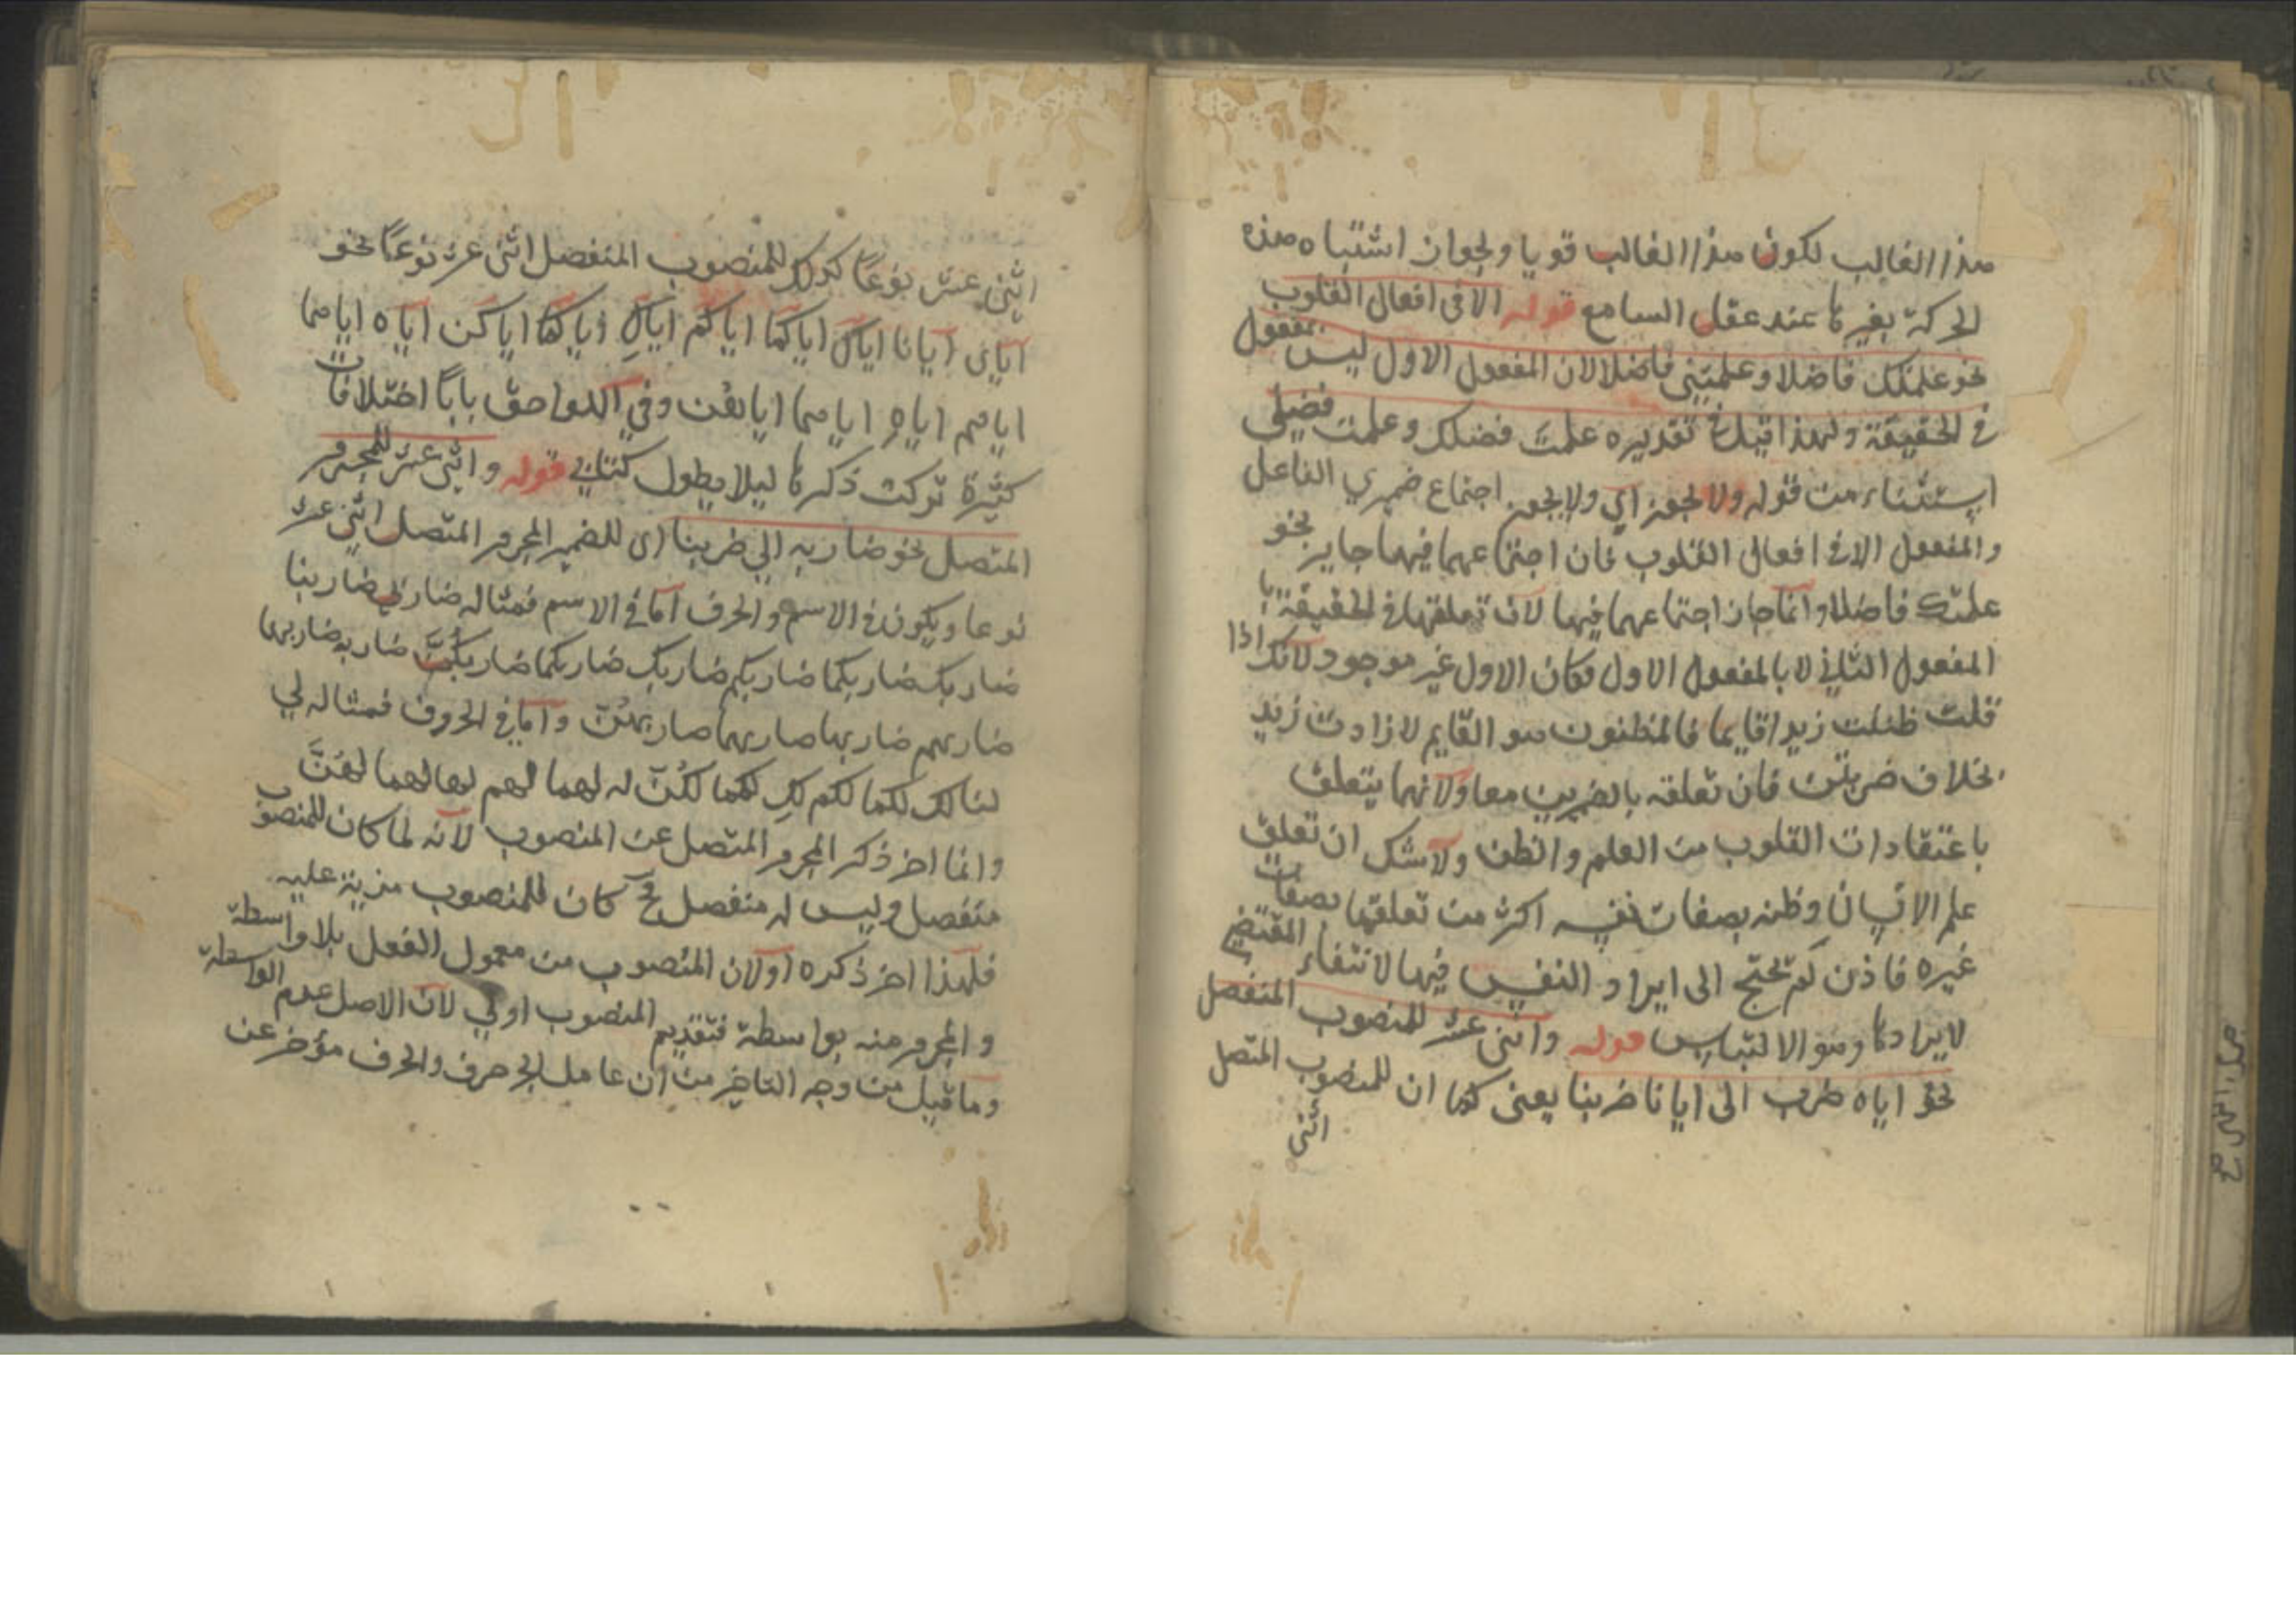 هذا الغالب لكون هذا الغالب قويا ولجواز اشتباه هذه
الحركة بغيرها عند عقل السامع قوله الا في افعال القلوب
نحو علمتك فاضلا وعلمتني فاضلا لان المفعول الاول ليس بمفعول
في الحقيقة ولهذا قيل في تقديره علمت فضلك وعلمت فضلي
استثناء من قوله ولا يجوز اي ولا يجوز اجتماع ضميري الفاعل
والمفعول الا في افعال القلوب فان اجتماعهما فيها جايز نحو
علمتك فاضلا وانما جاز اجتماعهما فيها لان تعلقها في الحقيقة با
المفعول الثاني لا بالمفعول الاول فكان الاول غير موجود لانك اذا
قلت ظننت زيدا قايما فالمظنون هو القايم لا ذات زيد
بخلاف ضربت فان تعلقه بالضميرين معا ولانهما يتعلق
باعتقادات القلوب من العلم والظن ولا شك ان تعلق
علم الانسان وظنه بصفات نفسه اكثر من تعلقهما بصفات
غيره فاذن لم تحتج الى ايراد النفس فيها لانتفاء المقتضي
لايرادها وهو الالتباس قوله واثني عشر للمنصوب المنفصل
نحو اياه ضرب الى ايانا ضربنا يعني كما ان للمنصوب المتصل
اثني
اثني عشر نوعًا كذلك للمنصوب المنفصل اثني عشر نوعًا نحو
اياي ايانا اياك اياكما اياكم اياكِ اياكما اياكن اياه اياهما
اياهم اياها اياهما اياهن وفي اللواحق بايًا اختلافات
كثيرة تركت ذكرها ليلا يطول كتابي قوله واثني عشر للمجرور
المتصل نحو ضاربه الي ضربنا اي للضمير المجرور المتصل اثني عشر
نوعا ويكون في الاسم والحرف اما في الاسم فمثاله ضاربي ضاربنا
ضاربك ضاربكما ضاربكم ضاربكِ ضاربكما ضاربكُنَّ ضاربه ضاربهما
ضاربهم ضاربها ضاربهما ضاربهُنّ واما في الحروف فمثاله لي
لنا لك لكما لكم لكِ لكما لكُنّ له لهما لهم لها لهما لهُنَّ
وانما اخر ذكر المجرور المتصل عن المنصوب لانه لما كان للمنصوب
منفصل وليس له منفصل كان للمنصوب مزية عليه
فلهذا اخر ذكره اولان المنصوب من معمول الفعل بلا واسطة
والمجرور منه بواسطة فتقديم المنصوب اولي لان الاصل عدم الواسطة
وما قيل من وجه التاخير من ان عامل الجر حرف والحرف مؤخر عن